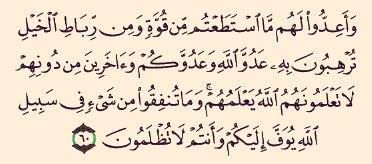 وَأَعِدُّوا۟ لَهُم مَّا ٱسْتَطَعْتُم مِّن قُوَّةٍ وَمِن رِّبَاطِ ٱلْخَيْلِ
تُرْهِبُونَ بِهِۦ عَدُوَّ ٱللَّهِ وَعَدُوَّكُمْ وَءَاخَرِينَ مِن دُونِهِمْ
لَا تَعْلَمُونَهُمُ ٱللَّهُ يَعْلَمُهُمْ ۚ وَمَا تُنفِقُوا۟ مِن شَىْءٍ فِى سَبِيلِ
ٱللَّهِ يُوَفَّ إِلَيْكُمْ وَأَنتُمْ لَا تُظْلَمُونَ ٦٠